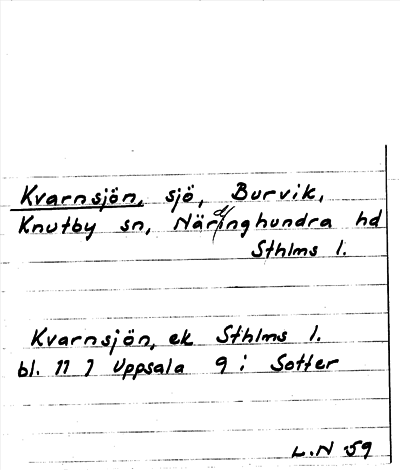 Kvarnsjön, sjö, Burvik,
Knutby sn, Närdinghundra hd
Sthlms l.
Kvarnsjön, ek Sthlms l.
bl. 11 I Uppsala 9 i Sotter
L.N 59